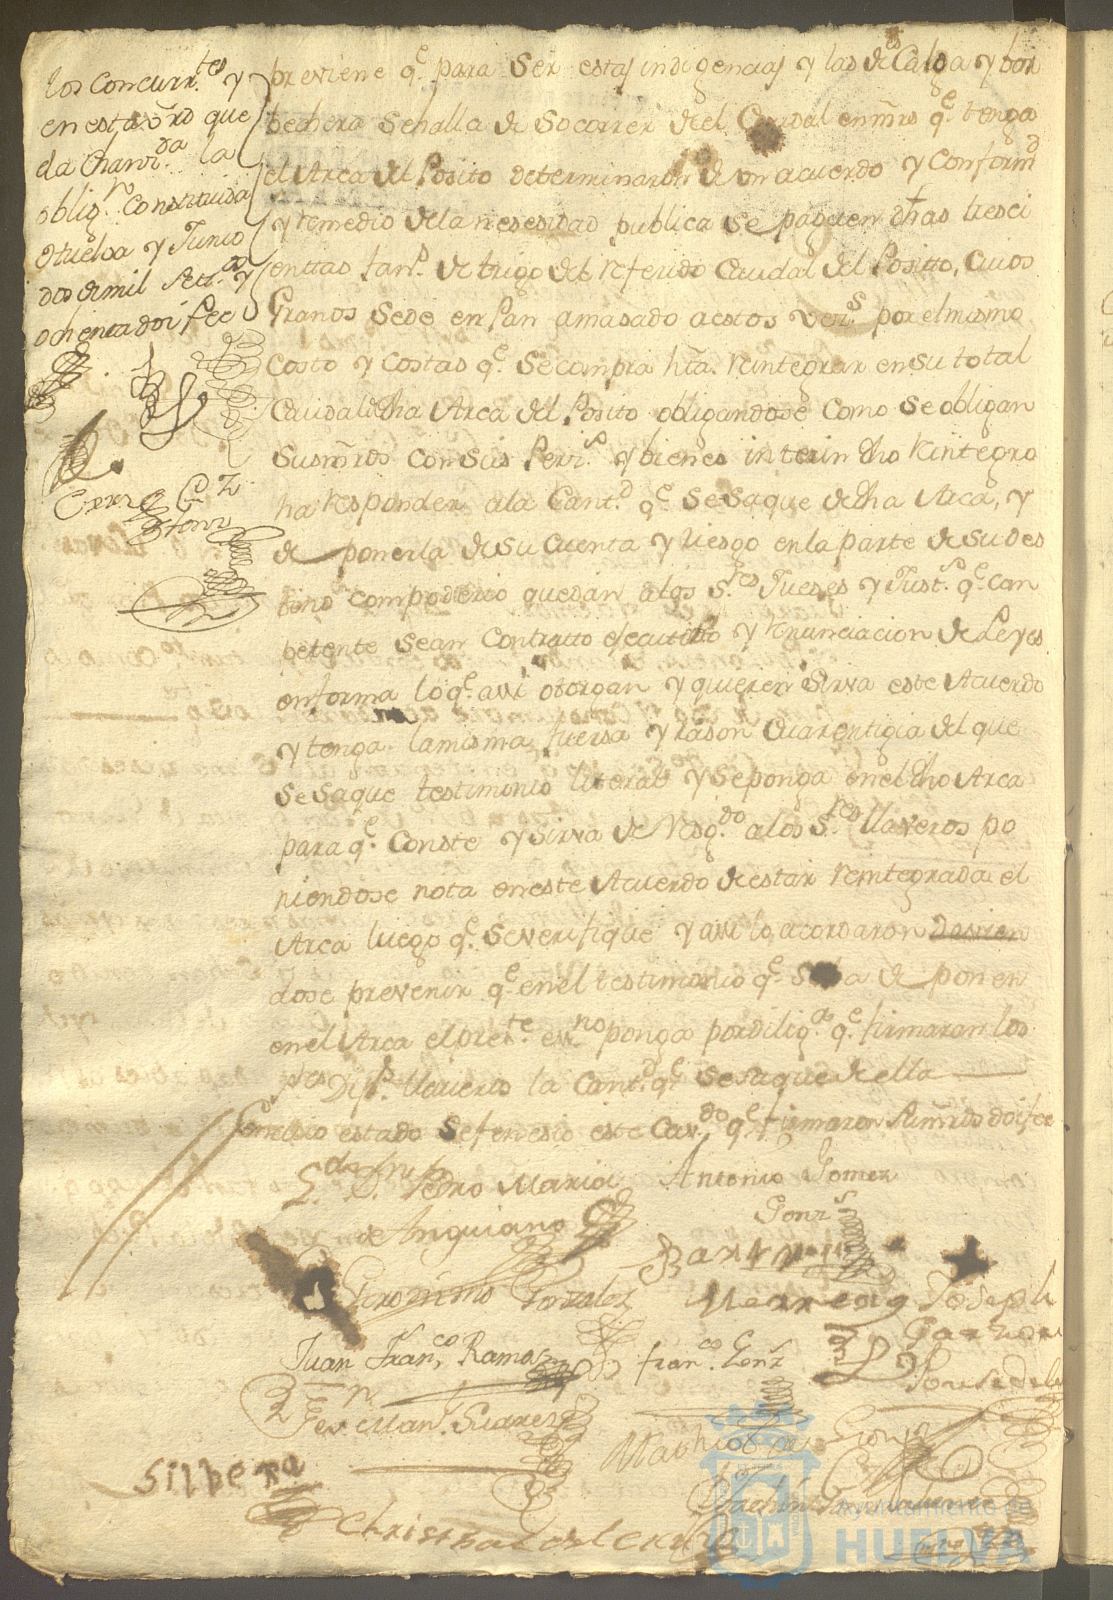 los concurr.tes y
en esta vrd que
da chanz.da la
oblig.n constituida
Huelva y Junio
dos de mil set.os y
ochenta doi fee
previene q.e para ser estas indigencias y las de
se halla de socorrer de el Caudal en mrs q.e tenga
el Arca del Posito determinaron de un acuerdo y conformd
y remedio de la nesesidad publica se paguen dhas tresci
entas fan.s de trigo del referido Caudal del Posito, cuios
Granos se de en Pan amasado a estos Vez.s por el mismo
Costo y costas q.e se compra hta. reintegrar en su total
Caudal dha Arca del Posito obligandose como se obligan
Sus mrds con sus Pers.s y bienes interin dho reintegro
ha responder ala Cant.d q.e se saque de dha Arca, y
de ponerla de su Cuenta y riesgo en la parte de su des
tino como poderio quedan alos S.res Jueses y Just.s q.e con
petente sean contratto ejecutibo y renunciacion de Leyes
en forma lo q.e assi otorgan y quieren sirva este Acuerdo
y tenga la misma fuersa y rason Cuarentigia del que
se saque testimonio literal y se ponga en el dho Arca
para q.e conste y sirva de resg.do alos S.res llaveros po
niendose nota en este Acuerdo de estar reintegrada el
Arca luego q.e se verifique y assi lo acordaron
dose prevenir q.e en el testimonio q.e se ha de poner
en el Arca el pres.te ess.no ponga por dilig.a q.e firmaran los
S.res Dip.s llaveros la Cant.d q.e se saque de ella
en cuio estado se fenesio este Cav.do q.e firmaron sus mrds doi fee
L.do D. Pedro Maria
de Anguiano
Antonio Gomez
Gonz.s
Geronimo Gonzalez
Joseph
Garzon
Juan Fran.co Ramos
fran.co Gonz
Ponse de
Man.l Suarez
Silbera
Christobal
Ayuntamiento de
HUELVA